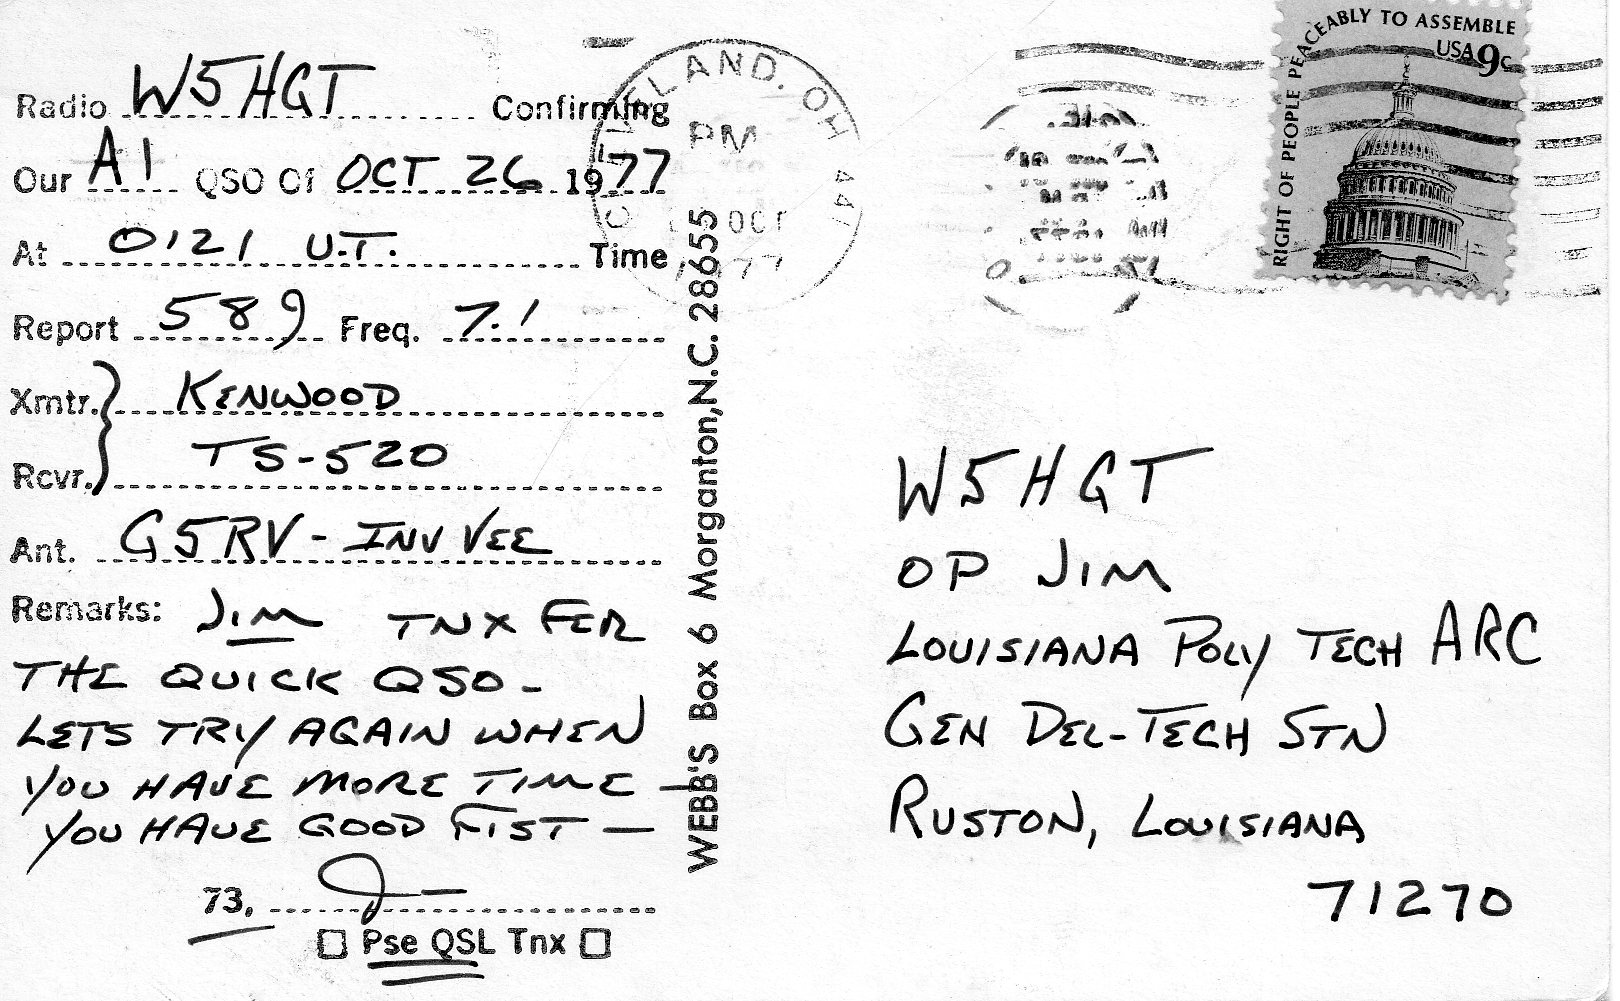 Radio W5HGT Confirming
Our A1 QSO Of OCT 26 1977
At 0121 U.T. Time
Report 589 Freq. 7.1
Xmtr. KENWOOD
Rcvr. TS-520
Ant. G5RV - INV VEE
Remarks: JIM TNX FER
THE QUICK QSO -
LETS TRY AGAIN WHEN
YOU HAVE MORE TIME -
YOU HAVE GOOD FIST -
73,
Pse QSL Tnx
WEBB'S Box 6 Morganton, N.C. 28655
CLEVELAND, OH 441
PM
OCT
1977
RIGHT OF PEOPLE PEACEABLY TO ASSEMBLE
USA 9c
W5HGT
OP JIM
LOUISIANA POLY TECH ARC
GEN DEL-TECH STN
RUSTON, LOUISIANA
71270